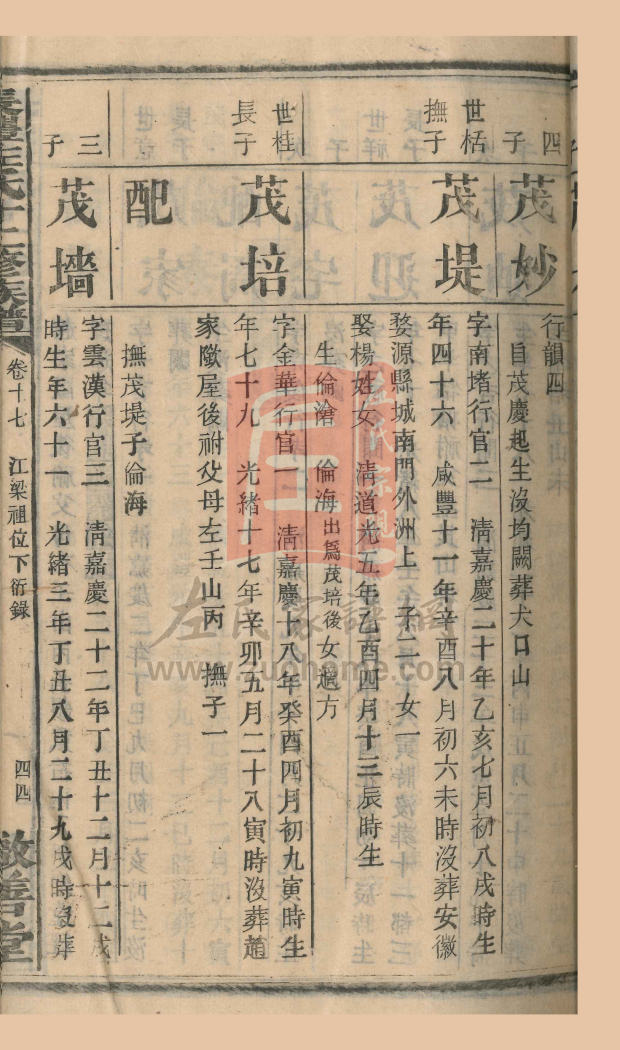 四子
茂妙
行韻四
自茂慶起生沒均闕葬犬口山
世栝撫子
茂堤
字南堵行官二 清嘉慶二十年乙亥七月初八戌時生
年四十六 咸豐十一年辛酉八月初六未時沒葬安徽
婺源縣城南門外洲上 子二 女一
娶楊姓女 清道光五年乙酉四月十三辰時生
生倫滄 倫海出爲茂培後女適方
世桂長子
茂培
字金華行官一 清嘉慶十八年癸酉四月初九寅時生
年七十九 光緒十七年辛卯五月二十八寅時沒葬趙
家隞屋後祔父母左壬山丙 撫子一
配
撫茂堤子倫海
三子
茂墻
字雲漢行官三 清嘉慶二十二年丁丑十二月十二戌
時生年六十一 光緒三年丁丑八月二十九戌時沒葬
左氏十二修族譜
卷十七 江梁祖位下衍錄
四四
敦善堂
左氏家譜網
www.zuohome.com